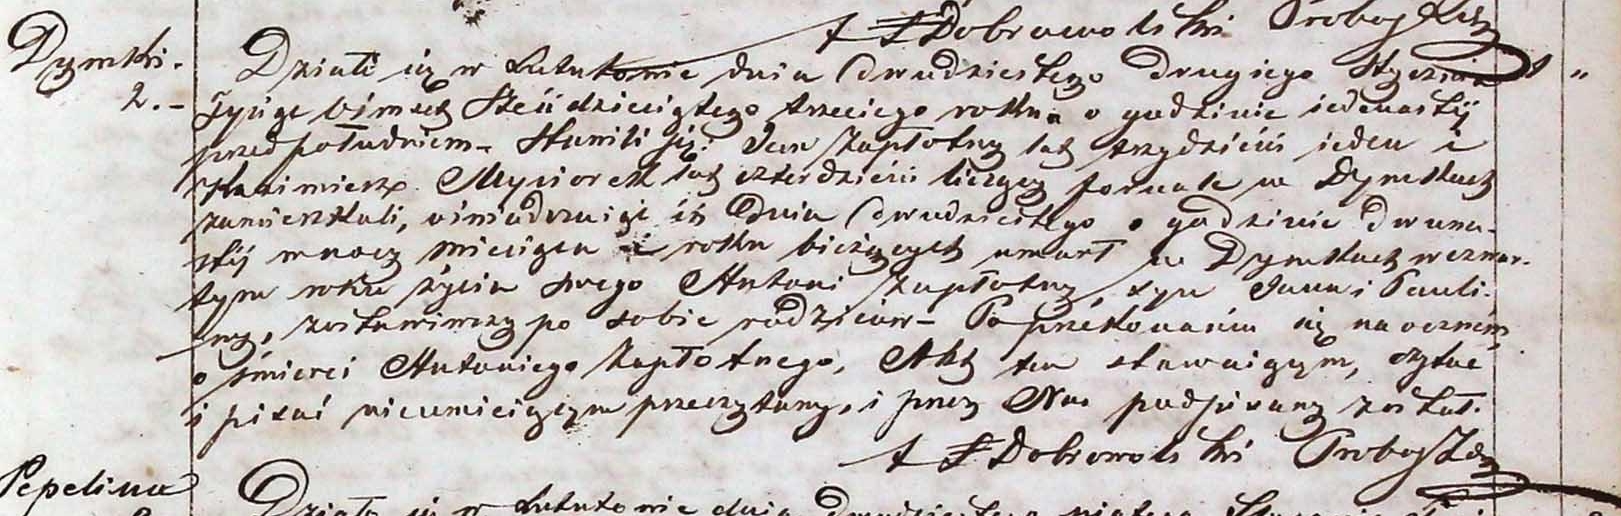 A F Dobrowolski Proboszcz
Dymki.
2.-
Działo się w Lututowie dnia dwudziestego drugiego Stycznia
Tysiąc ośmset sześćdziesiątego trzeciego roku o godzinie iedenastéj
przed południem. Stawili się: Jan Zapłotny lat trzydzieści ieden i
Kazimierz Mysiorek lat czterdzieści liczący fornale w Dymkach
zamieszkali, oświadczaiąc iż dnia dwudziestego o godzinie dwuna-
stéj w nocy miesiąca i roku bieżących umarł w Dymkach w czwar-
tym roku życia swego Antoni Zapłotny, syn Jana i Pauli-
ny, zostawiwszy po sobie rodziców- Po przekonaniu się naocznem
o śmierci Antoniego Zapłotnego, Akt ten stawaiącym, czytać
i pisać nieumieiącym przeczytany, i przez Nas podpisany został.
A F Dobrowolski Proboszcz
Pepelina
Działo się w Lututowie dnia dwudziestego piątego Stycznia